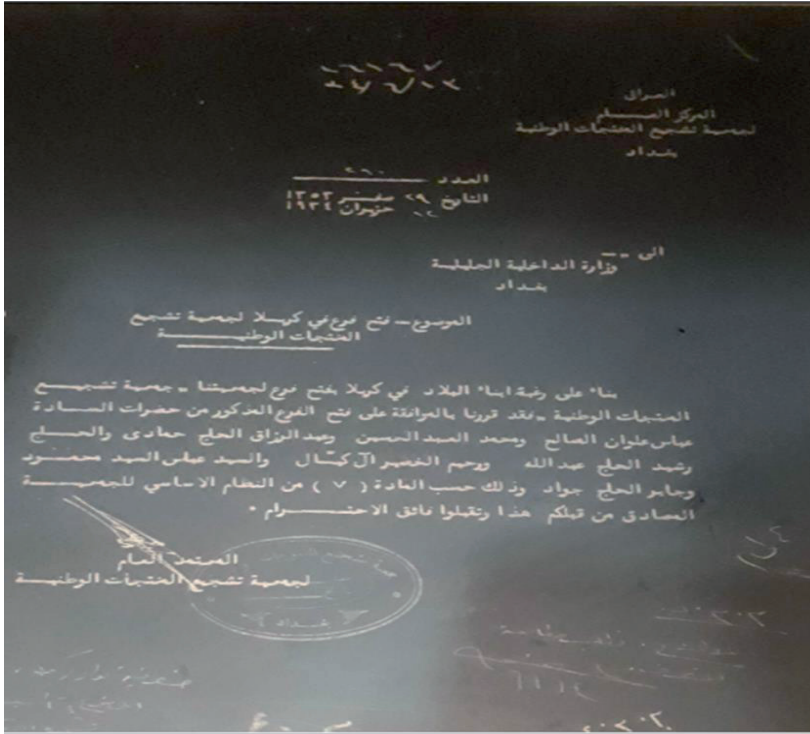 العراق
المركز العام
لجمعية تشجيع المنتجات الوطنية
بغداد
العدد ٢٦٠
التاريخ ٢٩ صفر ١٣٥٣
١٢ حزيران ١٩٣٤
الى --
وزارة الداخلية الجليلية
بغداد
الموضوع - فتح فرع في كربلا لجمعية تشجيع
المنتجات الوطنية
بناء على رغبة ابناء البلاد في كربلا بفتح فرع لجمعيتنا - جمعية تشجيع
المنتجات الوطنية - فقد قررنا بالموافقة على فتح الفرع المذكور من حضرات السادة
عباس علوان الصالح ومحمد السيد الحسين وعبد الرزاق الحاج حمادى والحاج
رشيد الحاج عبد الله ورحيم الخضير ال كمال والسيد عباس السيد محمود
وجابر الحاج جواد وذلك حسب المادة ( ٧ ) من النظام الاساسي للجمعية
المصادق من قبلكم هذا وتقبلوا فائق الاحترام .
المعتمد العام
لجمعية تشجيع المنتجات الوطنية
بغداد